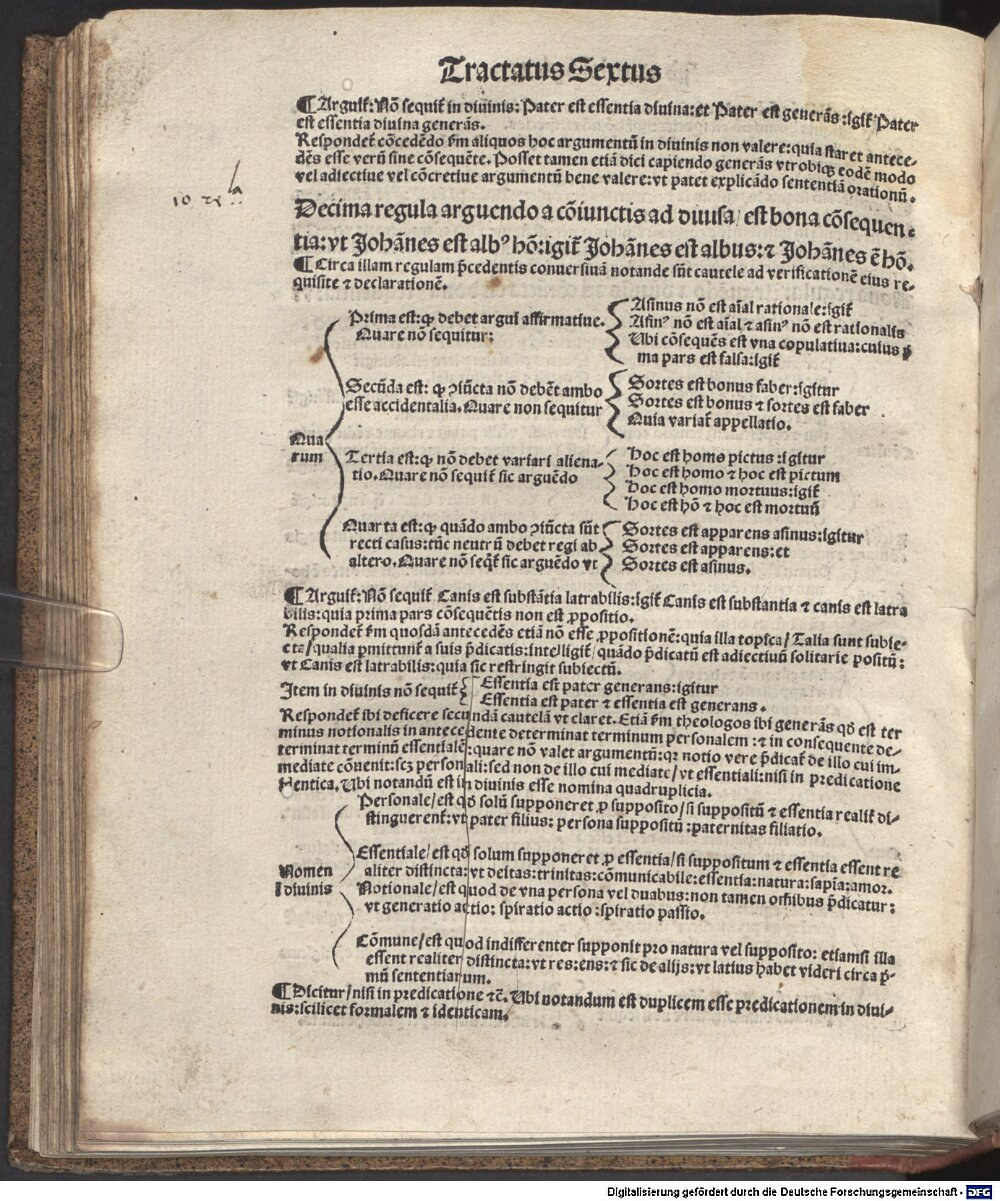 Tractatus Sextus
¶ Arguit᷑: Nō sequit᷑ in diuinis: Pater est essentia diuina: et Pater est generās: igit᷑ Pater
est essentia diuina generās.
Respondet᷑ cōcedēdo ẜm aliquos hoc argumentū in diuinis non valere: quia staret antece-
dēs esse verū sine cōsequēte. Posset tamen etiā dici capiendo generās vtrobiqꝫ eodē modo
vel adiectiue vel cōcretiue argumentū bene valere: vt patet explicādo sententiā orationū.
10 ... la
Decima regula arguendo a cōiunctis ad diuisa / est bona cōsequen-
tia: vt Johānes est albꝰ hō: igit᷑ Johānes est albus: ⁊ Johānes ē hō.
¶ Circa illam regulam p̄cedentis conuersiuā notande sūt cautele ad verificationē eius re-
quisite ⁊ declarationē.
Qua
rum
Prima est: ꝙ debet argui affirmatiue.
Quare nō sequitur:
Asinus nō est aīal rationale: igit᷑
Asinꝰ nō est aīal ⁊ asinꝰ nō est rationalis
Ubi cōsequēs est vna copulatiua: cuius p̄
ma pars est falsa: igit᷑
Secūda est: ꝙ ꝯiūcta nō debēt ambo
esse accidentalia. Quare non sequitur
Sortes est bonus faber: igitur
Sortes est bonus ⁊ sortes est faber
Quia variat᷑ appellatio.
Tertia est: ꝙ nō debet variari aliena-
tio. Quare nō sequit᷑ sic arguēdo
Hoc est homo pictus: igitur
Hoc est homo ⁊ hoc est pictum
Hoc est homo mortuus: igit᷑
Hoc est hō ⁊ hoc est mortuū
Quarta est: ꝙ quādo ambo ꝯiūcta sūt
recti casus: tūc neutrū debet regi ab
altero. Quare nō seqt᷑ sic arguēdo vt
Sortes est apparens asinus: igitur
Sortes est apparens: et
Sortes est asinus.
¶ Arguit᷑: Nō sequit᷑ Canis est substātia latrabilis: igit᷑ Canis est substantia ⁊ canis est latra
bilis: quia prima pars cōsequētis non est ꝓpositio.
Respondet᷑ ẜm quosdā antecedēs etiā nō esse ꝓpositionē: quia illa topica / Talia sunt subie-
cta / qualia ꝑmittunt᷑ a suis p̄dicatis: intelligit᷑ quādo p̄dicatū est adiectiuū solitarie positū:
vt Canis est latrabilis: quia sic restringit subiectū.
Item in diuinis nō sequit᷑
Essentia est pater generans: igitur
Essentia est pater ⁊ essentia est generans.
Respondet᷑ ibi deficere secundā cautelā vt claret. Etiā ẜm theologos ibi generās qđ est ter
minus notionalis in antecedente determinat terminum personalem: ⁊ in consequente de-
terminat terminū essentialē: quare nō valet argumentū: qꝛ notio vere p̄dicat᷑ de illo cui im-
mediate cōuenit: scꝫ personali: sed non de illo cui mediate / vt essentiali: nisi in predicatione
identica. Ubi notandū est in diuinis esse nomina quadruplicia.
Nomen
ī diuinis
Personale / est qđ solū supponeret ꝓ supposito / si suppositū ⁊ essentia realit᷑ di-
stinguerent᷑: vt pater filius: persona suppositū: paternitas filiatio.
Essentiale / est qđ solum supponeret ꝓ essentia / si suppositum ⁊ essentia essent re
aliter distincta: vt deitas: trinitas: cōmunicabile: essentia: natura: sapīa: amor.
Notionale / est quod de vna persona vel duabus: non tamen oībus p̄dicatur:
vt generatio actio: spiratio actio: spiratio passio.
Cōmune / est quod indifferenter supponit pro natura vel supposito: etiamsi illa
essent realiter distincta: vt res: ens: ⁊ sic de alijs: vt latius habet videri circa p̄-
mū sententiarum.
¶ Dicitur / nisi in predicatione ⁊c̄. Ubi notandum est duplicem esse predicationem in diui-
nis: scilicet formalem ⁊ identicam.
Digitalisierung gefördert durch die Deutsche Forschungsgemeinschaft - DFG